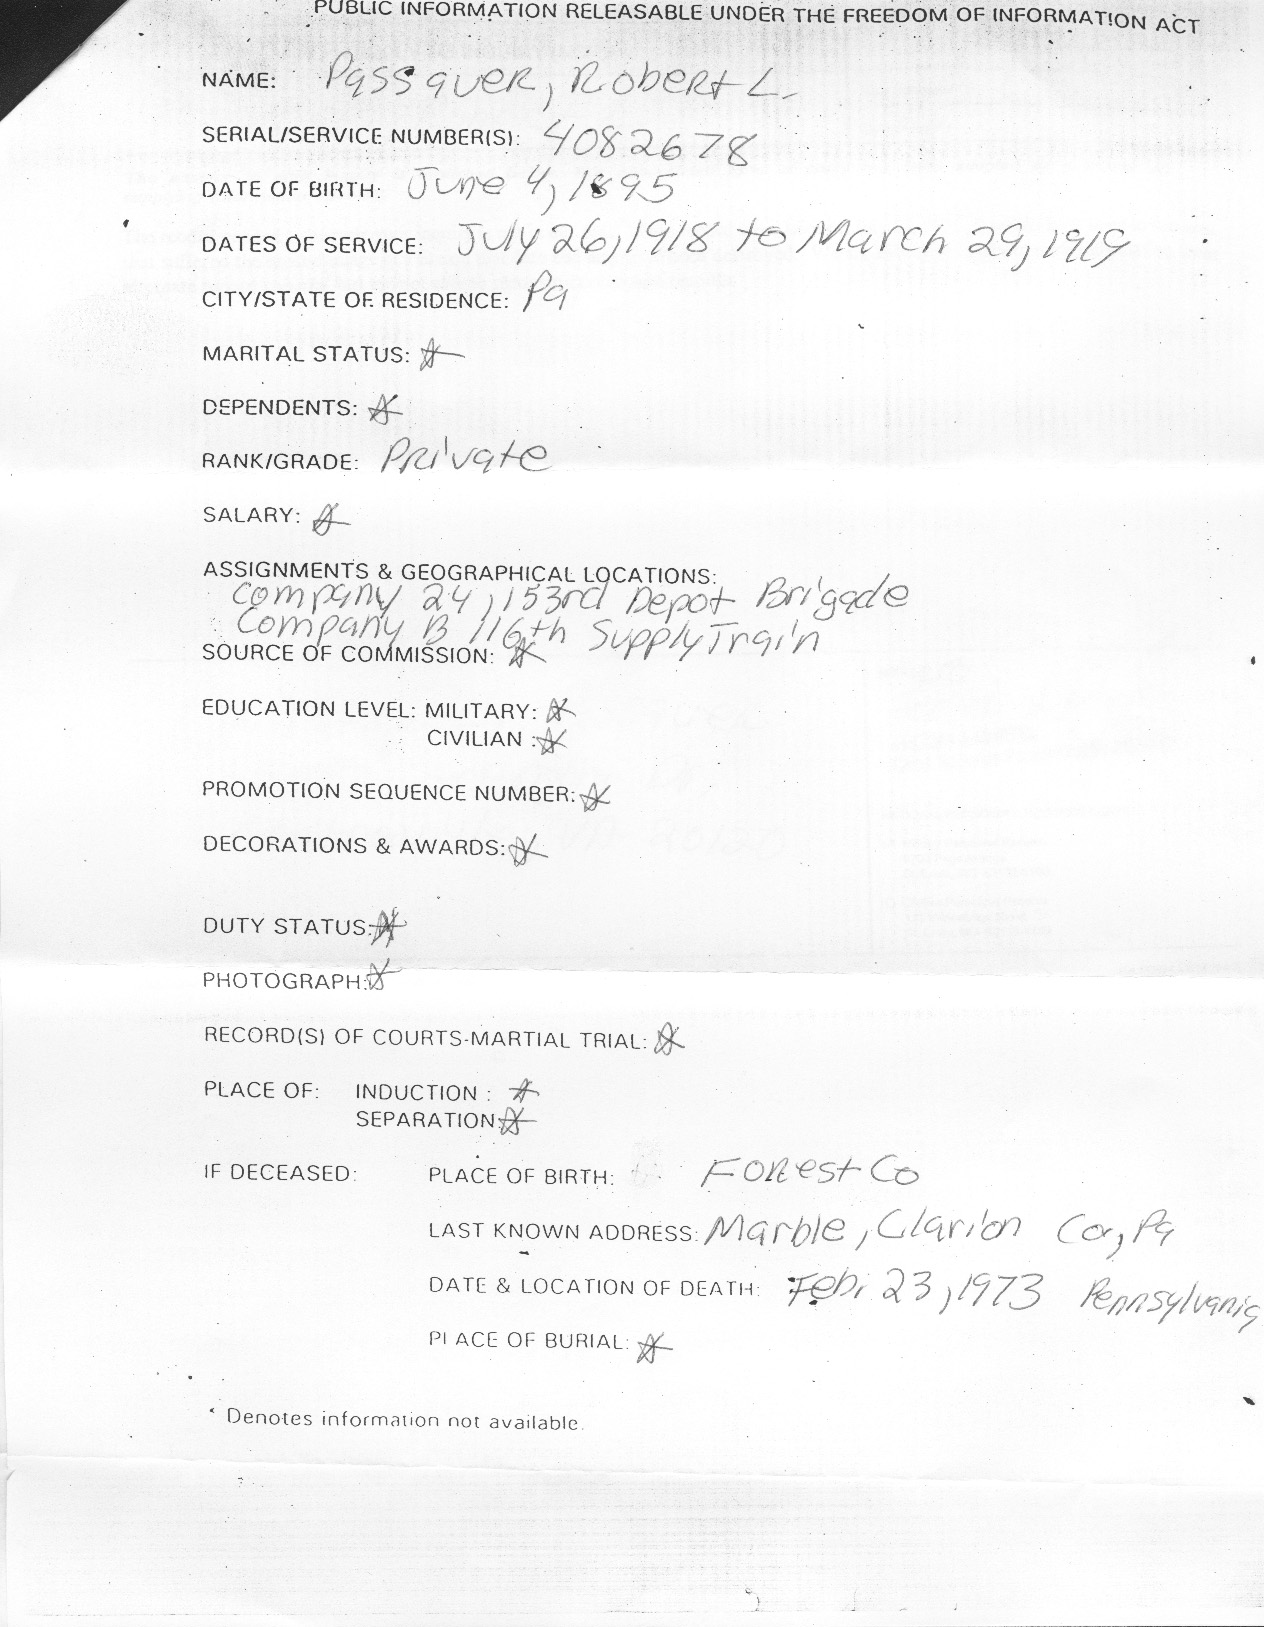 PUBLIC INFORMATION RELEASABLE UNDER THE FREEDOM OF INFORMATION ACT
NAME: Passauer, Robert L.
SERIAL/SERVICE NUMBER(S): 4082678
DATE OF BIRTH: June 4, 1895
DATES OF SERVICE: July 26, 1918 to March 29, 1919
CITY/STATE OF RESIDENCE: Pa
MARITAL STATUS: *
DEPENDENTS: *
RANK/GRADE: Private
SALARY: *
ASSIGNMENTS & GEOGRAPHICAL LOCATIONS:
Company 24, 153rd Depot Brigade
Company B 116th Supply Train
SOURCE OF COMMISSION: *
EDUCATION LEVEL: MILITARY: *
CIVILIAN : *
PROMOTION SEQUENCE NUMBER: *
DECORATIONS & AWARDS: *
DUTY STATUS: *
PHOTOGRAPH: *
RECORD(S) OF COURTS-MARTIAL TRIAL: *
PLACE OF: INDUCTION : *
SEPARATION: *
IF DECEASED: PLACE OF BIRTH: Forest Co
LAST KNOWN ADDRESS: Marble, Clarion Co, Pa
DATE & LOCATION OF DEATH: Feb. 23, 1973 Pennsylvania
PLACE OF BURIAL: *
* Denotes information not available.